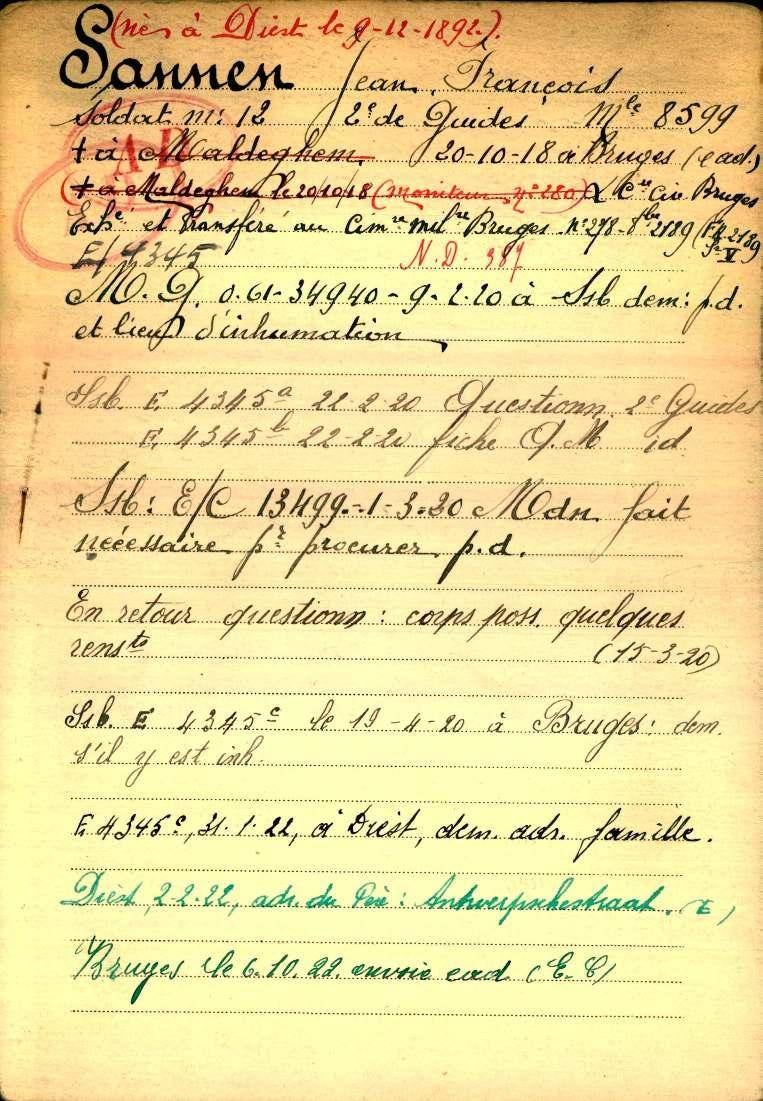 (nés à Diest le 9-12-1892).
Sannen Jean, François
Soldat m: 12 2e de Guides Mle 8599
† à Maldeghem. 20-10-18 à Bruges (ead.)
A.P.
(† à Maldeghem le 20/10/18 (Moniteur n° 280) Cre Civ Bruges
Exhé et transféré au Cimre milre Bruges n° 278 - 2189 (FB 2189
E/4345 N.D. 387 V
M.G. 0.61-34940-9-2-20 à Ssb dem: p.d.
et lieu d'inhumation
Ssb. E 4345a 22-2-20 Questionn. 2e Guides
E 4345b 22-2-20 fiche Q.M id
Ssb: E/C 13499.-1-3-20 Mdn fait
nécessaire pr procurer p.d.
En retour questionn: corps poss. quelques
rensts (15-3-20)
Ssb. E 4345c le 19-4-20 à Bruges: dem.
s'il y est inh.
E 4345c, 31.1.22, à Diest, dem. adr. famille.
Diest, 2-2-22, adr. du Père: Antwerpschestraat. (E)
Bruges le 6.10.22. envoie ead (E.C)